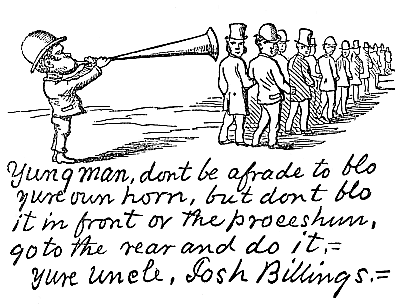 Yung man, dont be afrade to blo
yure own horn, but dont blo
it in front ov the proceshun,
go to the rear and do it.=
yure Uncle, Josh Billings.=